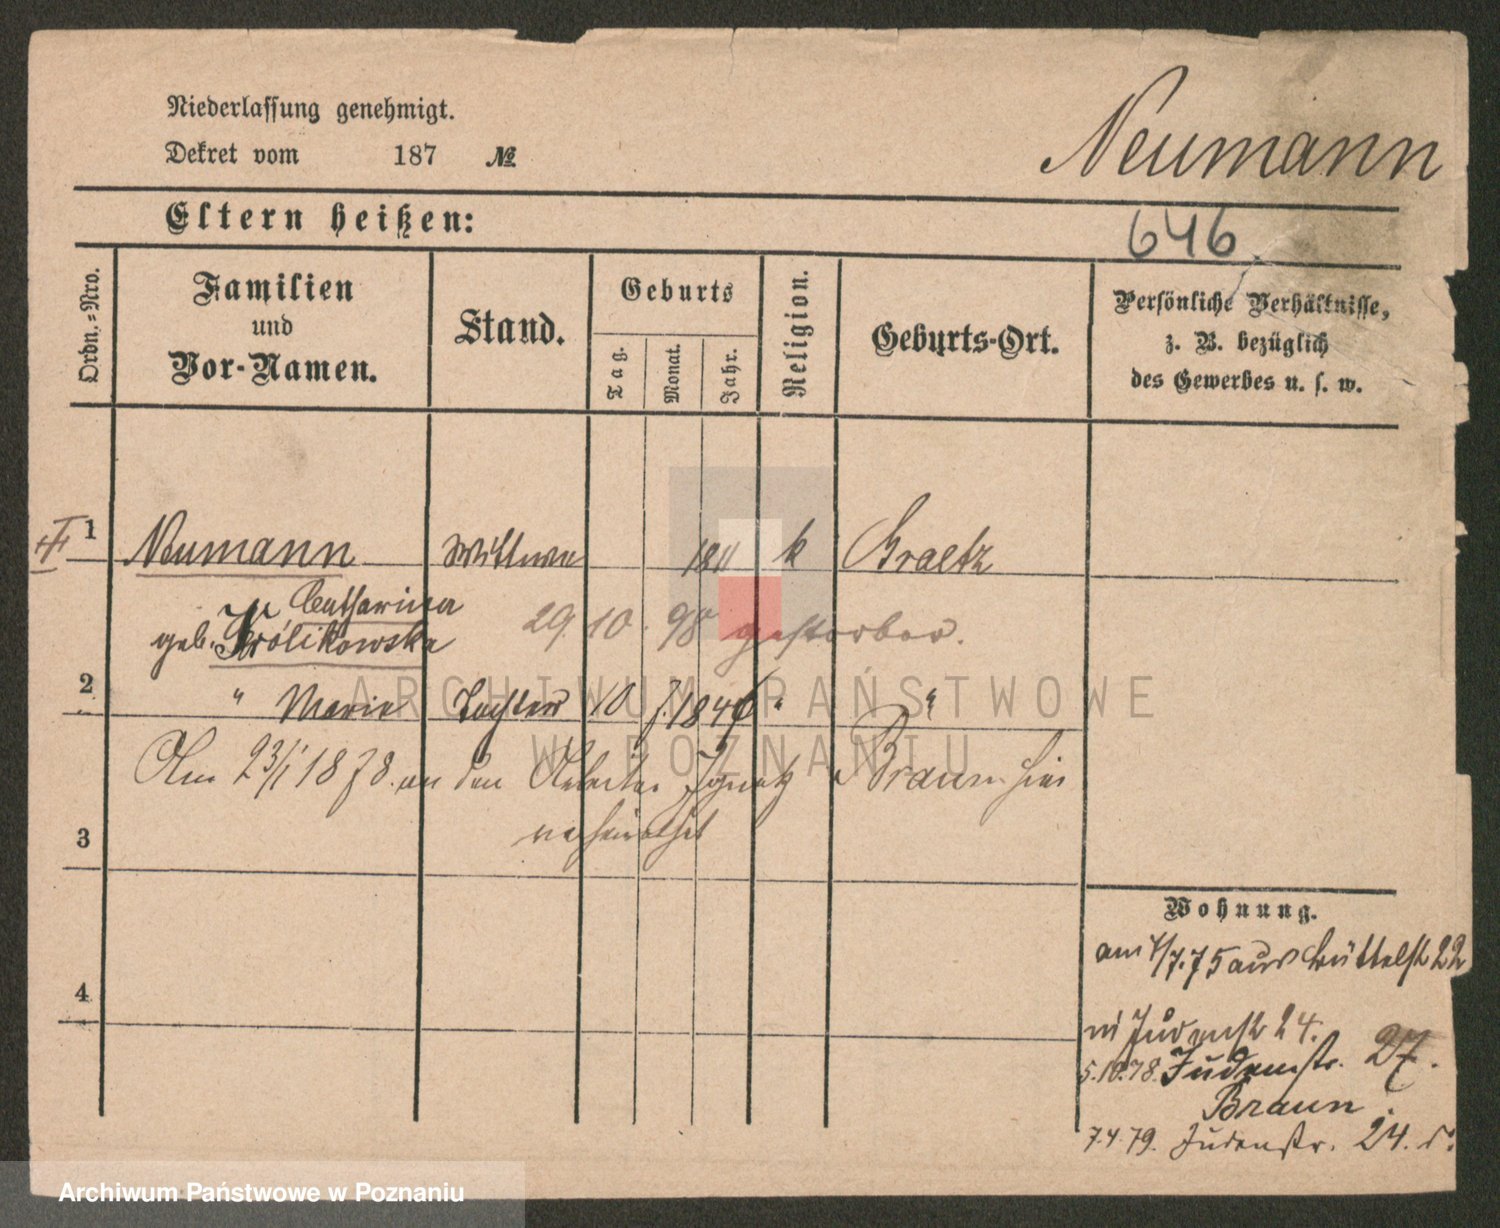 Niederlassung genehmigt.
Dekret vom 187 №
Neumann
Eltern heißen:
646
Ordn.=Nro.
Familien
und
Vor-Namen.
Stand.
Geburts
Tag.
Monat.
Jahr.
Religion.
Geburts-Ort.
Persönliche Verhältnisse,
z. B. bezüglich
des Gewerbes u. s. w.
1 Neumann Wittwe 1811 k Graetz
Catharina
geb. Królikowska
29. 10. 98 gestorben.
2 " Marie Tochter 10 7. " "
Am 23/1 1878. an den Arbeiter Ignatz Braun hier
verheirathet
3
4
Wohnung.
am 1/7.75 aus Büttelstr 22
in Judenstr 24.
5.10.78. Judenstr. 27.
Braun.
7.4.79. Judenstr. 24.
ARCHIWUM PAŃSTWOWE
W POZNANIU
Archiwum Państwowe w Poznaniu